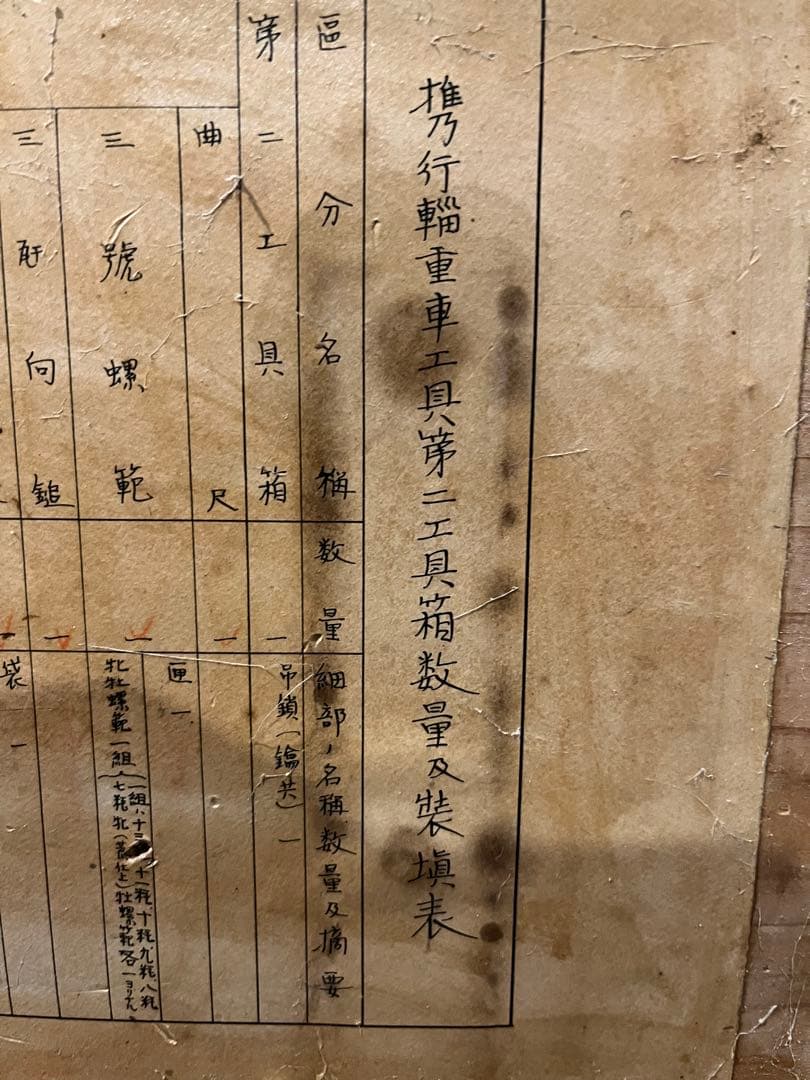 携行輜重車工具第二工具箱数量及装填表
區分名稱
数量
細部ノ名稱数量及摘要
第二工具箱
一
吊鎖(鑰共)一
曲尺
一
三號螺範
一
匣一
牝牡螺範一組
七粍牝(荒仕上)牡螺範各一ヨリナル
三瓩向鎚
一
袋一